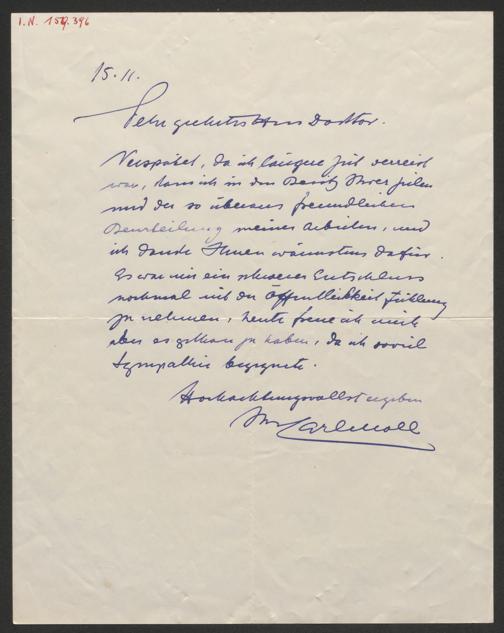 I.N. 159.396
15.11.
Sehr geehrter Herr Doktor.
Verspätet, da ich längere Zeit verreist
war, kam ich in den Besitz Ihrer Zeilen
und der so überaus freundlichen
Beurteilung meiner Arbeiten, und
ich danke Ihnen wärmstens dafür.
Es war mir ein schwerer Entschluss
nochmal mit der Öffentlichkeit Fühlung
zu nehmen, heute freue ich mich
aber es gethan zu haben, da ich soviel
Sympathie begegnete.
Hochachtungsvollst ergeben
Ihr Carl Moll